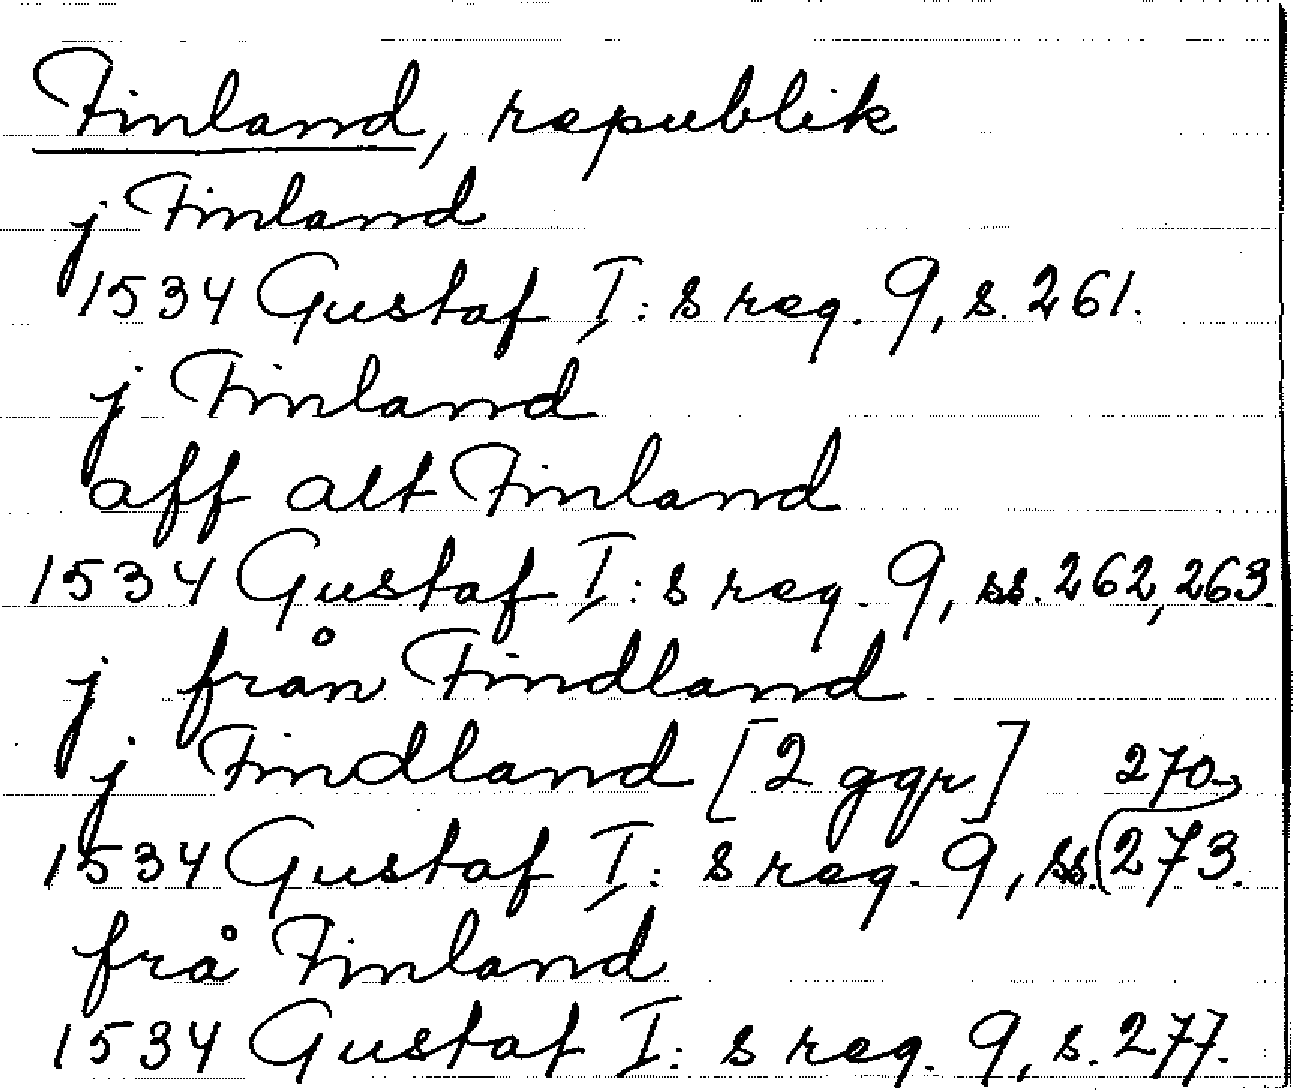 Finland, republik
j Finland
1534 Gustaf I:s reg. 9, s. 261.
j Finland
aff alt Finland
1534 Gustaf I:s reg. 9, ss. 262, 263.
j från Findland
j Findland [2 ggr] 270,
1534 Gustaf I:s reg. 9, ss. 273.
frå Finland
1534 Gustaf I:s reg. 9, s. 277.